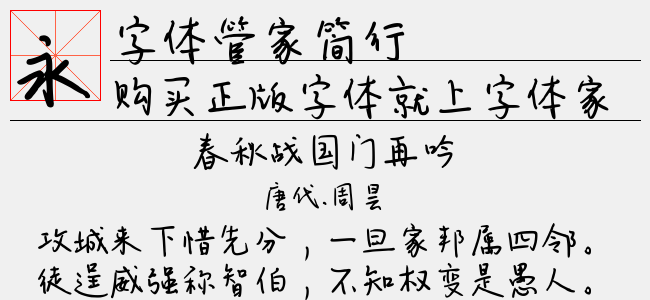 永
字体管家简行
购买正版字体就上字体家
春秋战国门再吟
唐代.周昙
攻城来下惜先分，一旦家邦属四邻。
徒逞威强称智伯，不知权变是愚人。